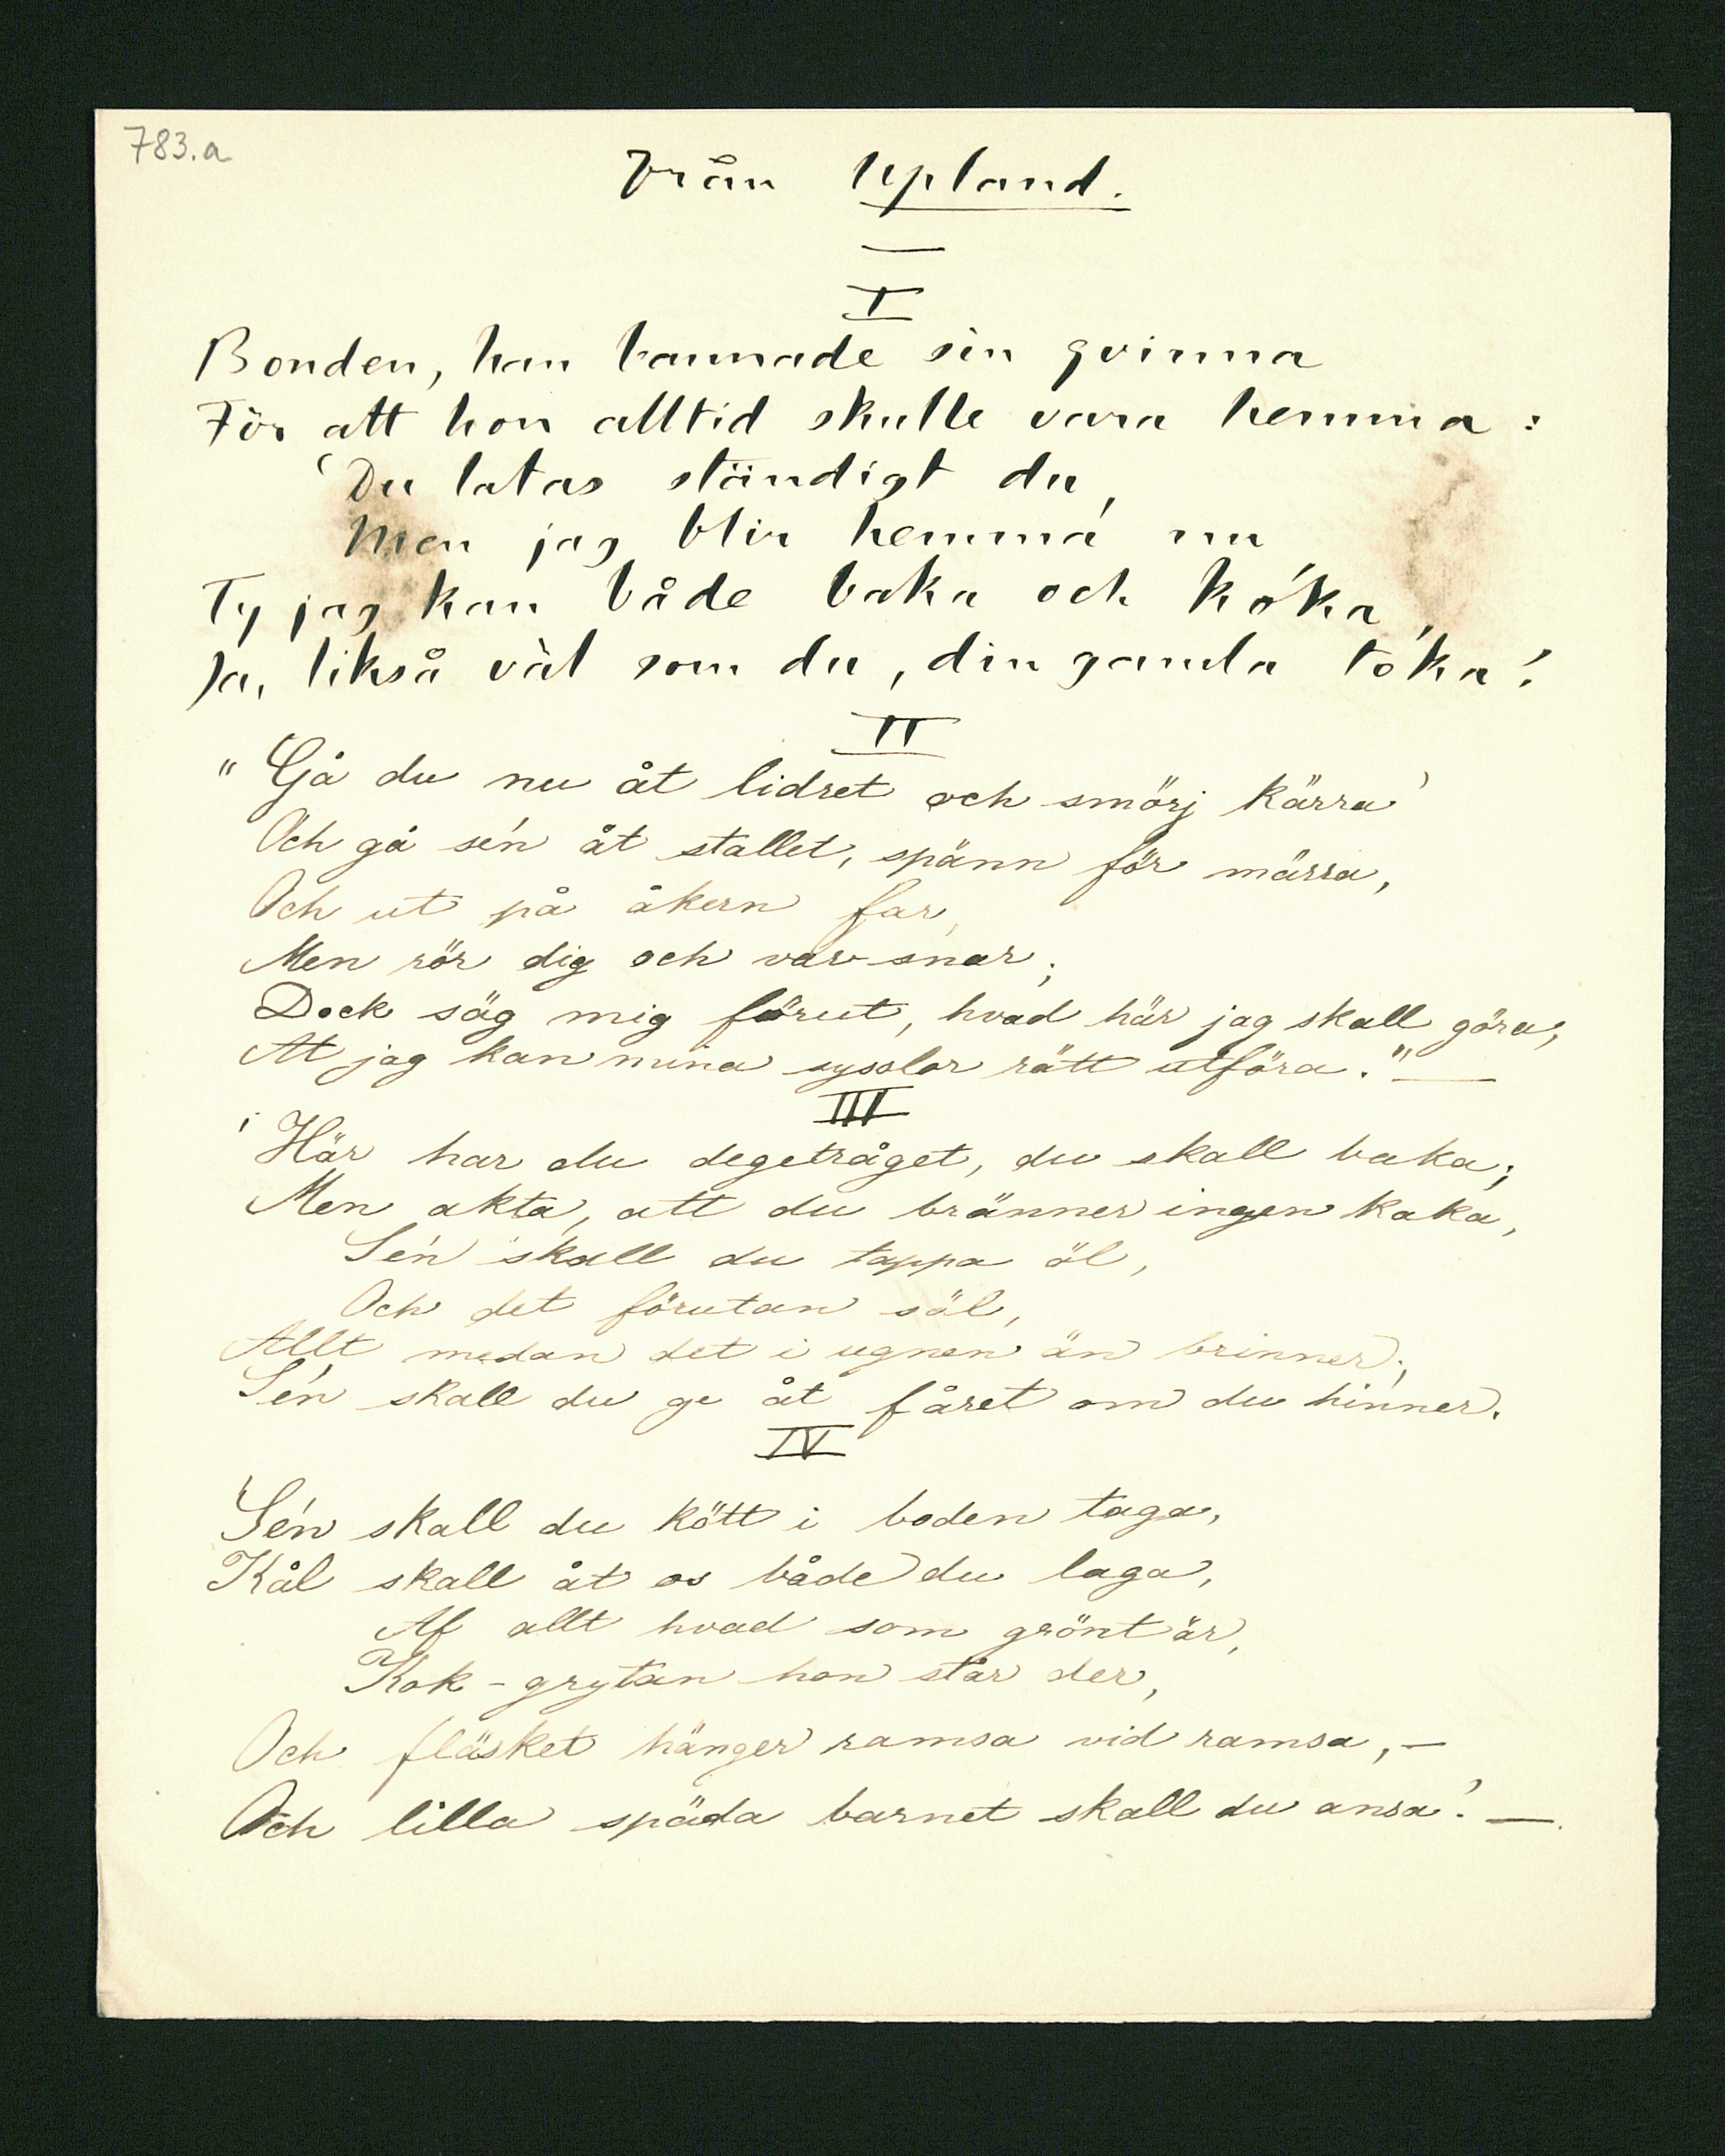 783.a
Från Upland.
I
Bonden, han bannade sin qvinna
För att hon alltid skulle vara hemma:
"Du latas ständigt du,
Men jag blir hemma nu
Ty jag kan både baka och koka,
Ja, likså väl som du, din gamla toka!
II
"Gå du nu åt lidret och smörj kärra
Och gå sén åt stallet, spänn för märra,
Och ut på åkern far,
Men rör dig och var snar;
Dock säg mig förut, hvad här jag skall göra,
At jag kan mina sysslor rätt utföra." —
III
"Här har du degetråget, du skall baka;
Men akta, att du bränner ingen kaka,
Sén skall du tappa öl,
Och det förutan söl,
Allt medan det i ugnen än brinner;
Sén skall du ge åt fåret om du hinner.
IV
Sén skall du kött i boden taga,
Kål skall åt os både du laga,
Af allt hvad som grönt är,
Kok-grytan hon står der,
Och fläsket hänger ramsa vid ramsa, —
Och lilla späda barnet skall du ansa! —